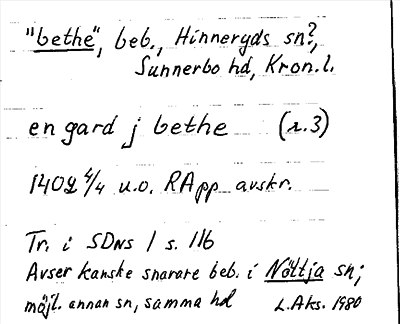 "bethe", beb., Hinneryds sn?,
Sunnerbo hd, Kron.l.
en gard j bethe (r.3)
1402 4/4 u.o. RApp avskr.
Tr. i SDns 1 s. 116
Avser kanske snarare beb. i Nöttja sn;
möjl. annan sn, samma hd L.Aks. 1980